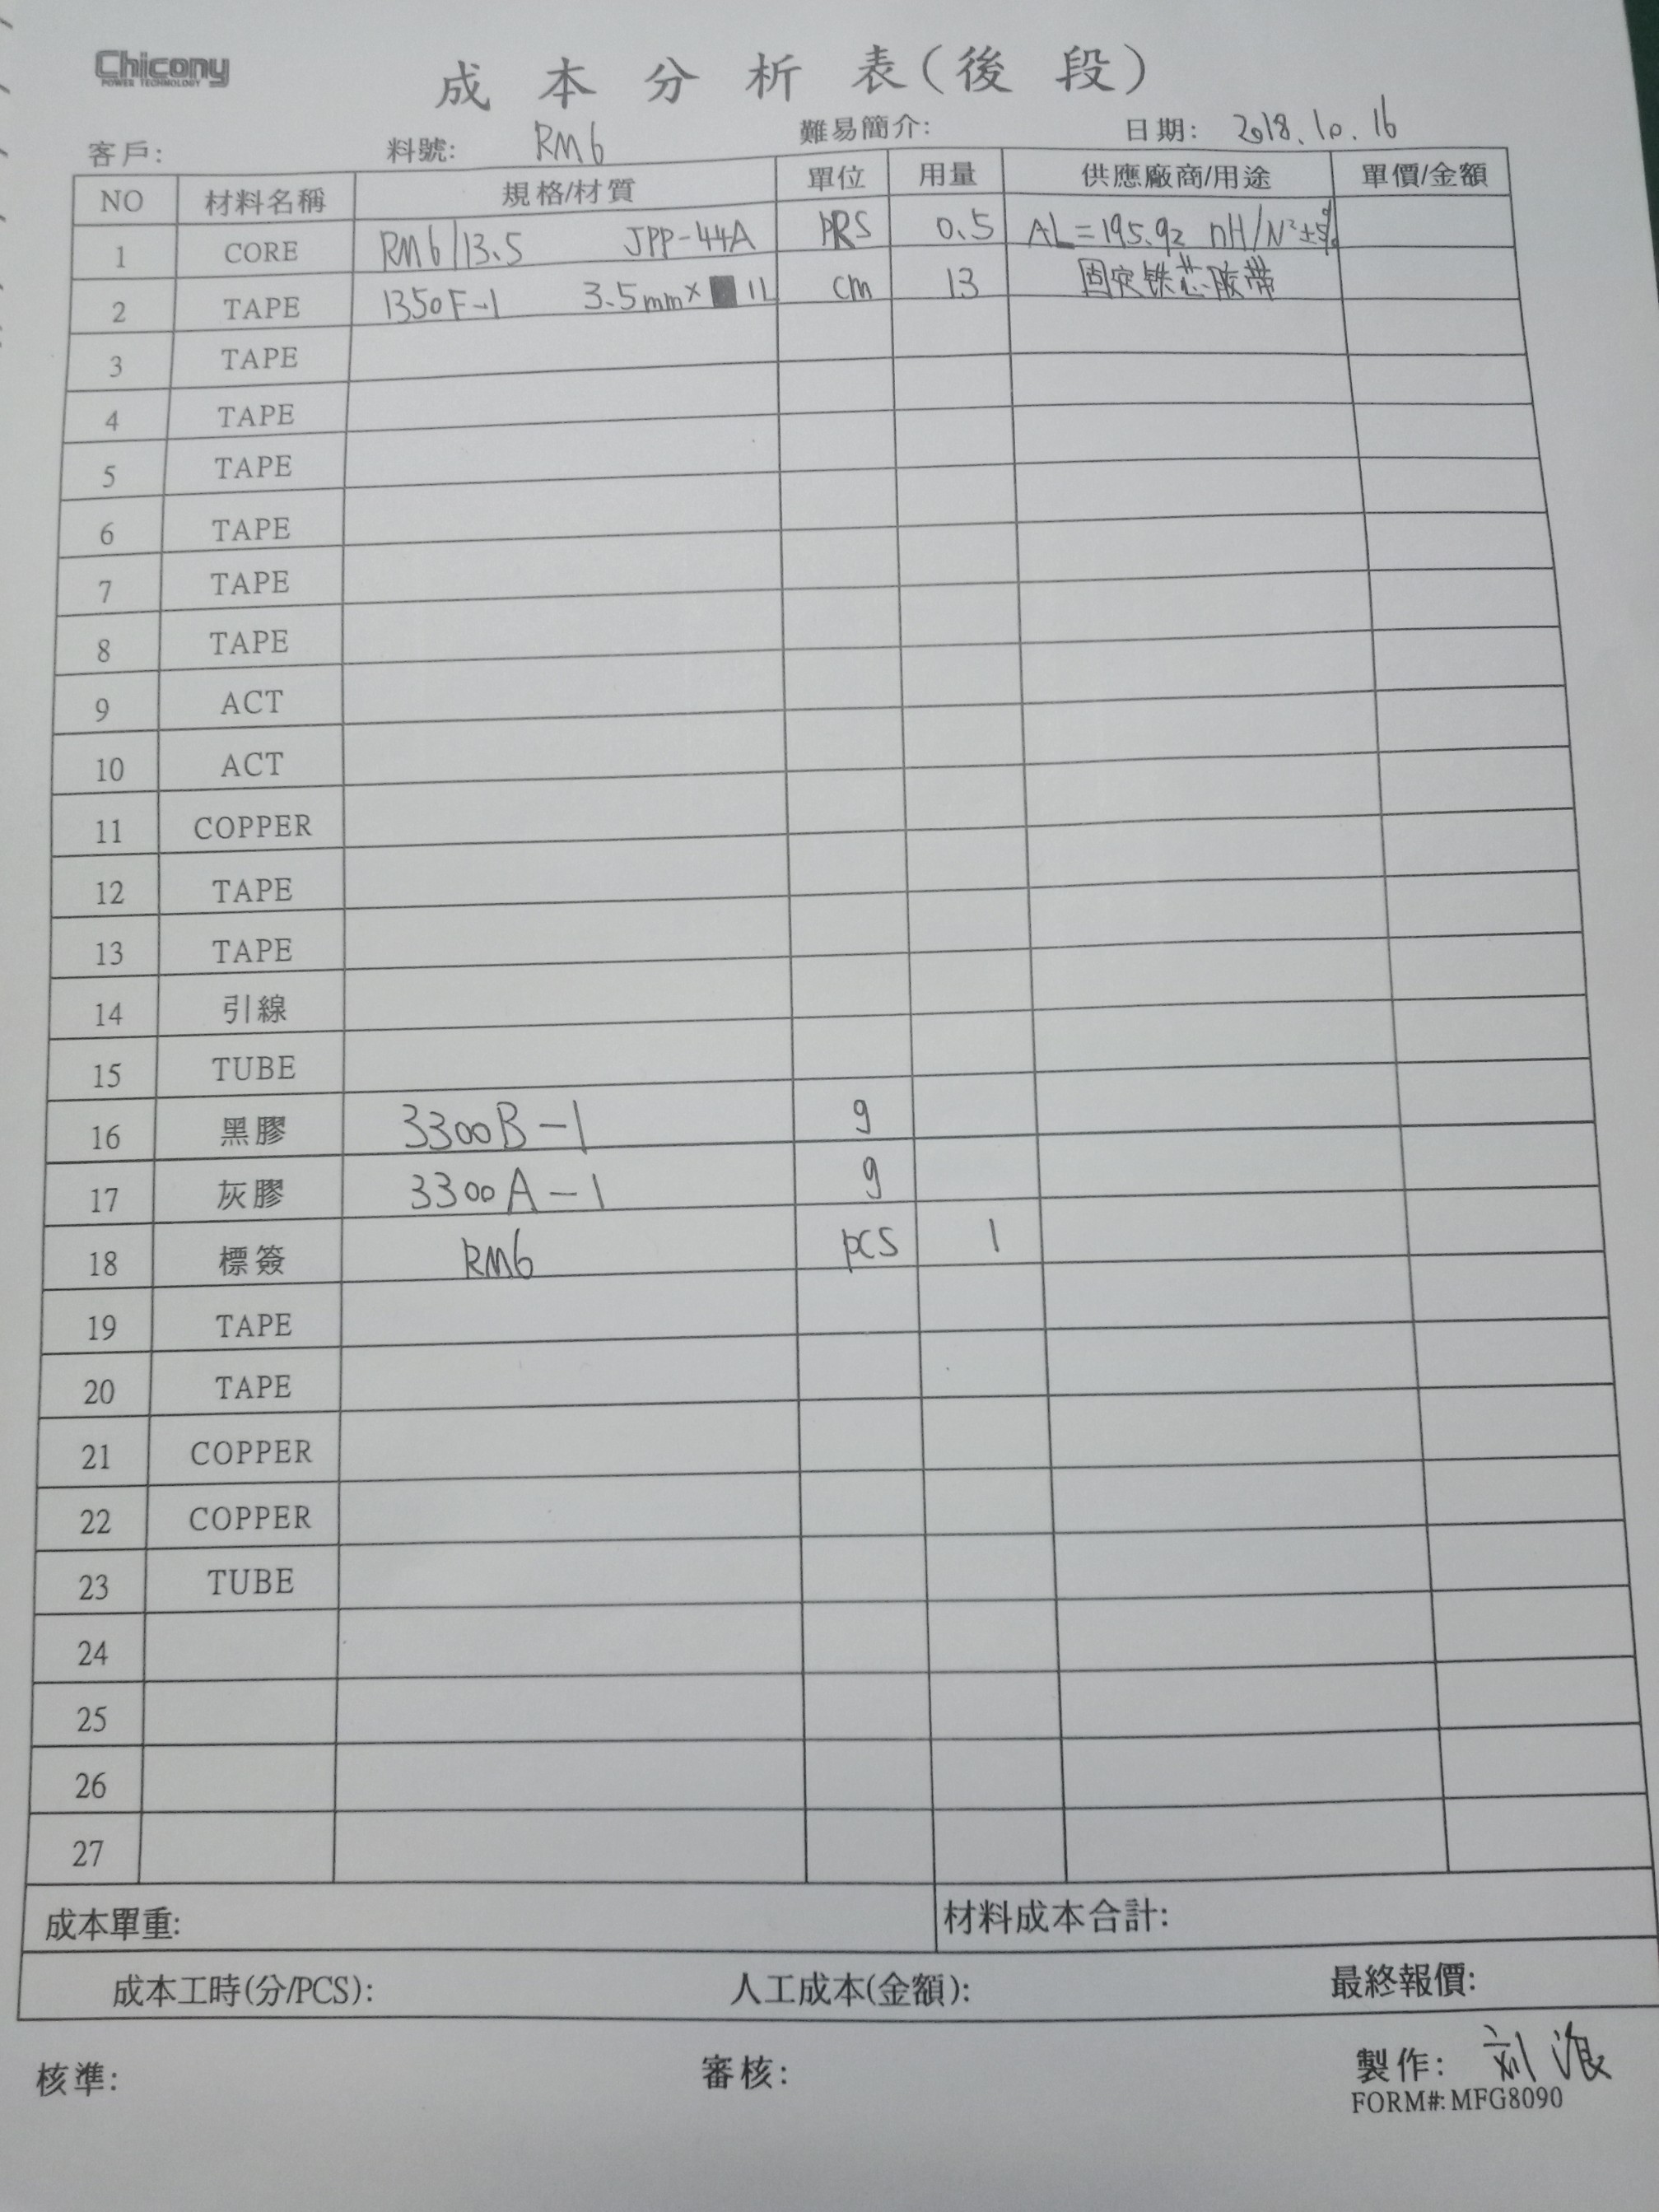 Chicony
POWER TECHNOLOGY
成本分析表(後段)
客戶: 料號: RM6 難易簡介: 日期: 2018.10.16
NO 材料名稱 規格/材質 單位 用量 供應廠商/用途 單價/金額
1 CORE RM6/13.5 JPP-44A PRS 0.5 AL=195.92 nH/N²±5%
2 TAPE 1350F-1 3.5mm× 1L cm 13 固定铁芯胶带
3 TAPE
4 TAPE
5 TAPE
6 TAPE
7 TAPE
8 TAPE
9 ACT
10 ACT
11 COPPER
12 TAPE
13 TAPE
14 引線
15 TUBE
16 黑膠 3300B-1 g
17 灰膠 3300A-1 g
18 標簽 RM6 pcs 1
19 TAPE
20 TAPE
21 COPPER
22 COPPER
23 TUBE
24
25
26
27
成本單重: 材料成本合計:
成本工時(分/PCS): 人工成本(金額): 最終報價:
核準: 審核: 製作: 刘浪
FORM#:MFG8090